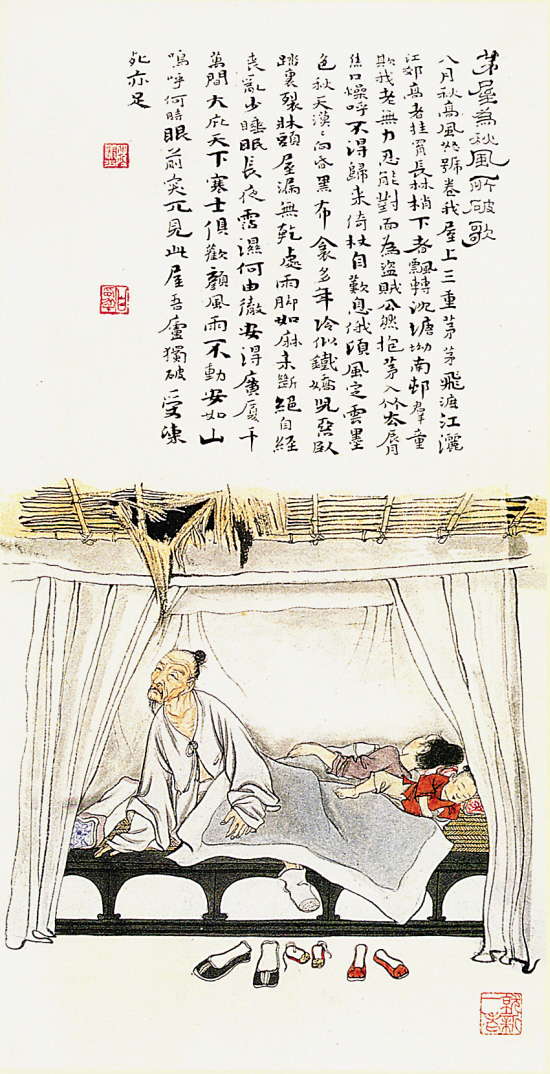 茅屋為秋風所破歌
八月秋高風怒號卷我屋上三重茅茅飛渡江灑
江郊高者挂罥長林梢下者飄轉沈塘坳南邨羣童
欺我老無力忍能對面為盜賊公然抱茅入竹去唇
焦口燥呼不得歸来倚杖自歎息俄頃風定雲墨
色秋天漠〻向昏黑布衾多年冷似鐵嬌兒惡臥
踏裏裂牀頭屋漏無乾處雨脚如麻未斷絕自経
喪亂少睡眠長夜霑濕何由徹安得廣厦千
萬間大庇天下寒士俱歡顏風雨不動安如山
嗚呼何時眼前突兀見此屋吾廬獨破受凍
死亦足